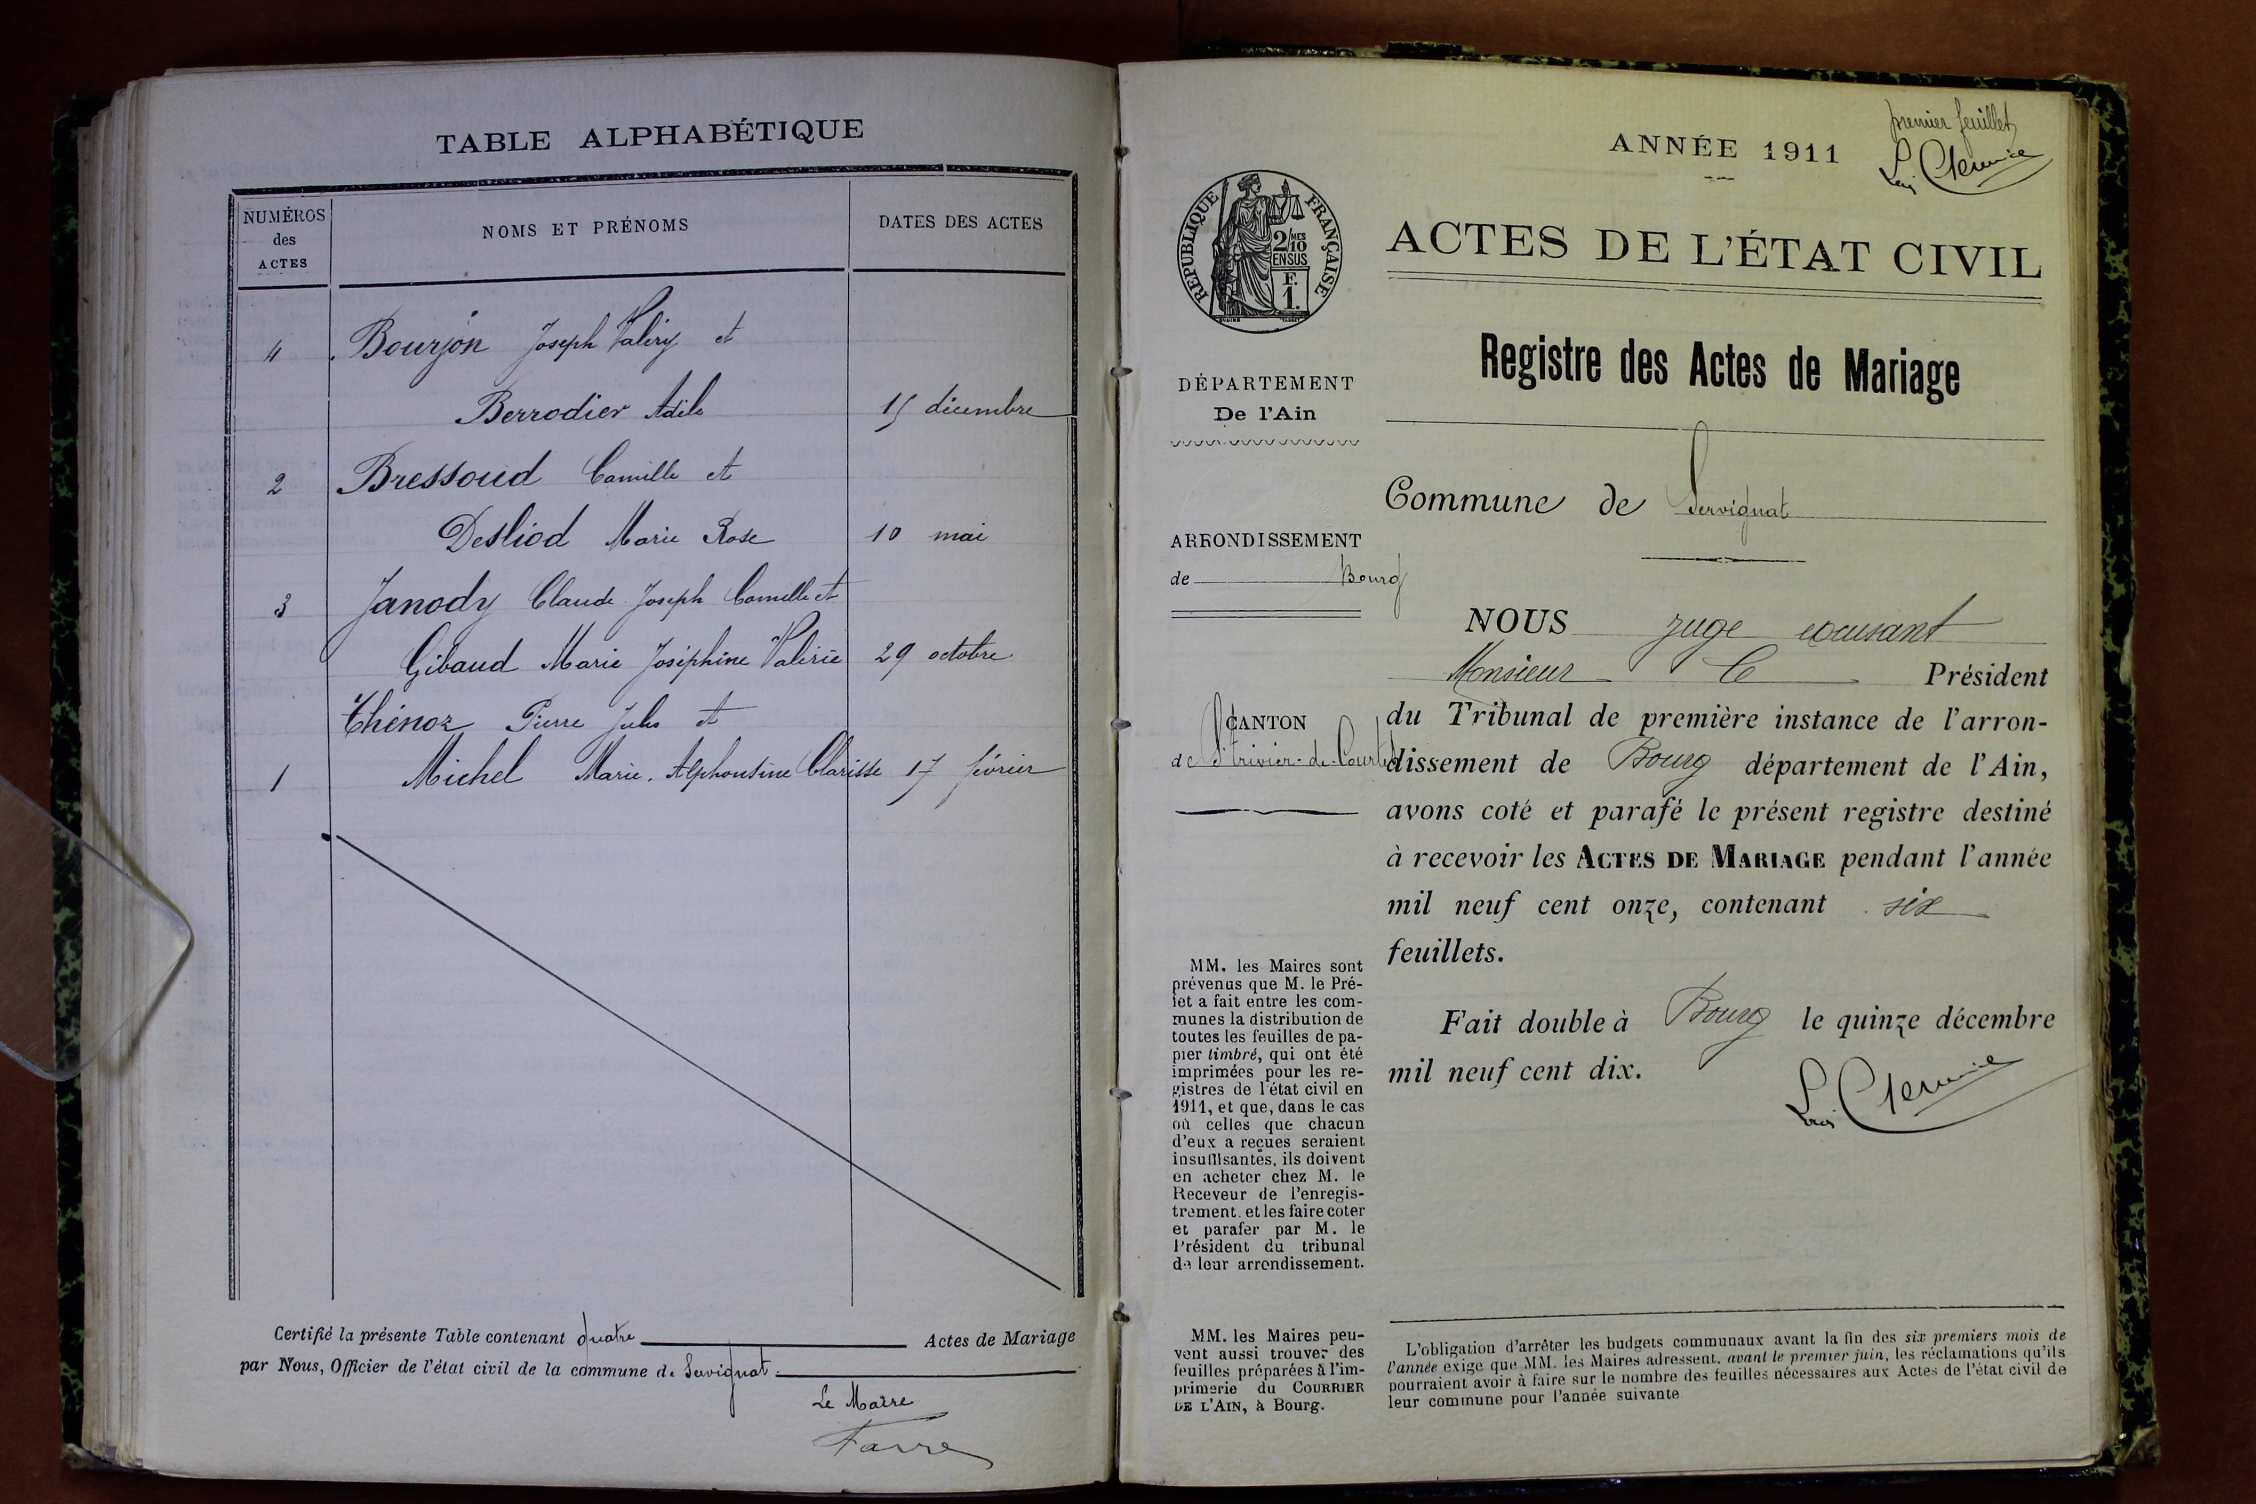 TABLE ALPHABÉTIQUE
NUMÉROS
des
ACTES
NOMS ET PRÉNOMS
DATES DES ACTES
4 Bourjon Joseph Valéry et
Berrodier Adèle 15 décembre
2 Bressoud Camille et
Desliod Marie Rose 10 mai
3 Janody Claude Joseph Camille et
Gibaud Marie Joséphine Valérie 29 octobre
Thénoz Pierre Jules et
1 Michel Marie Alphonsine Clarisse 17 février
Certifié la présente Table contenant quatre Actes de Mariage
par Nous, Officier de l'état civil de la commune de Servignat
Le Maire
Favre
premier feuillet
ANNÉE 1911
RÉPUBLIQUE FRANÇAISE
2/10MES
EN SUS
F.
1.
ACTES DE L'ÉTAT CIVIL
Registre des Actes de Mariage
DÉPARTEMENT
De l'Ain
Commune de Servignat
ARRONDISSEMENT
de Bourg
CANTON
de St Trivier-de-Courtes
NOUS juge excusant
Monsieur le Président
du Tribunal de première instance de l'arron-
dissement de Bourg département de l'Ain,
avons coté et parafé le présent registre destiné
à recevoir les ACTES DE MARIAGE pendant l'année
mil neuf cent onze, contenant six
feuillets.
Fait double à Bourg le quinze décembre
mil neuf cent dix.
MM. les Maires sont
prévenus que M. le Pré-
fet a fait entre les com-
munes la distribution de
toutes les feuilles de pa-
pier timbré, qui ont été
imprimées pour les re-
gistres de l'état civil en
1911, et que, dans le cas
où celles que chacun
d'eux a reçues seraient
insuffisantes, ils doivent
en acheter chez M. le
Receveur de l'enregis-
trement. et les faire coter
et parafer par M. le
Président du tribunal
de leur arrondissement.
MM. les Maires peu-
vent aussi trouver des
feuilles préparées à l'im-
primerie du COURRIER
DE L'AIN, à Bourg.
L'obligation d'arrêter les budgets communaux avant la fin des six premiers mois de
l'année exige que MM. les Maires adressent, avant le premier juin, les réclamations qu'ils
pourraient avoir à faire sur le nombre des feuilles nécessaires aux Actes de l'état civil de
leur commune pour l'année suivante